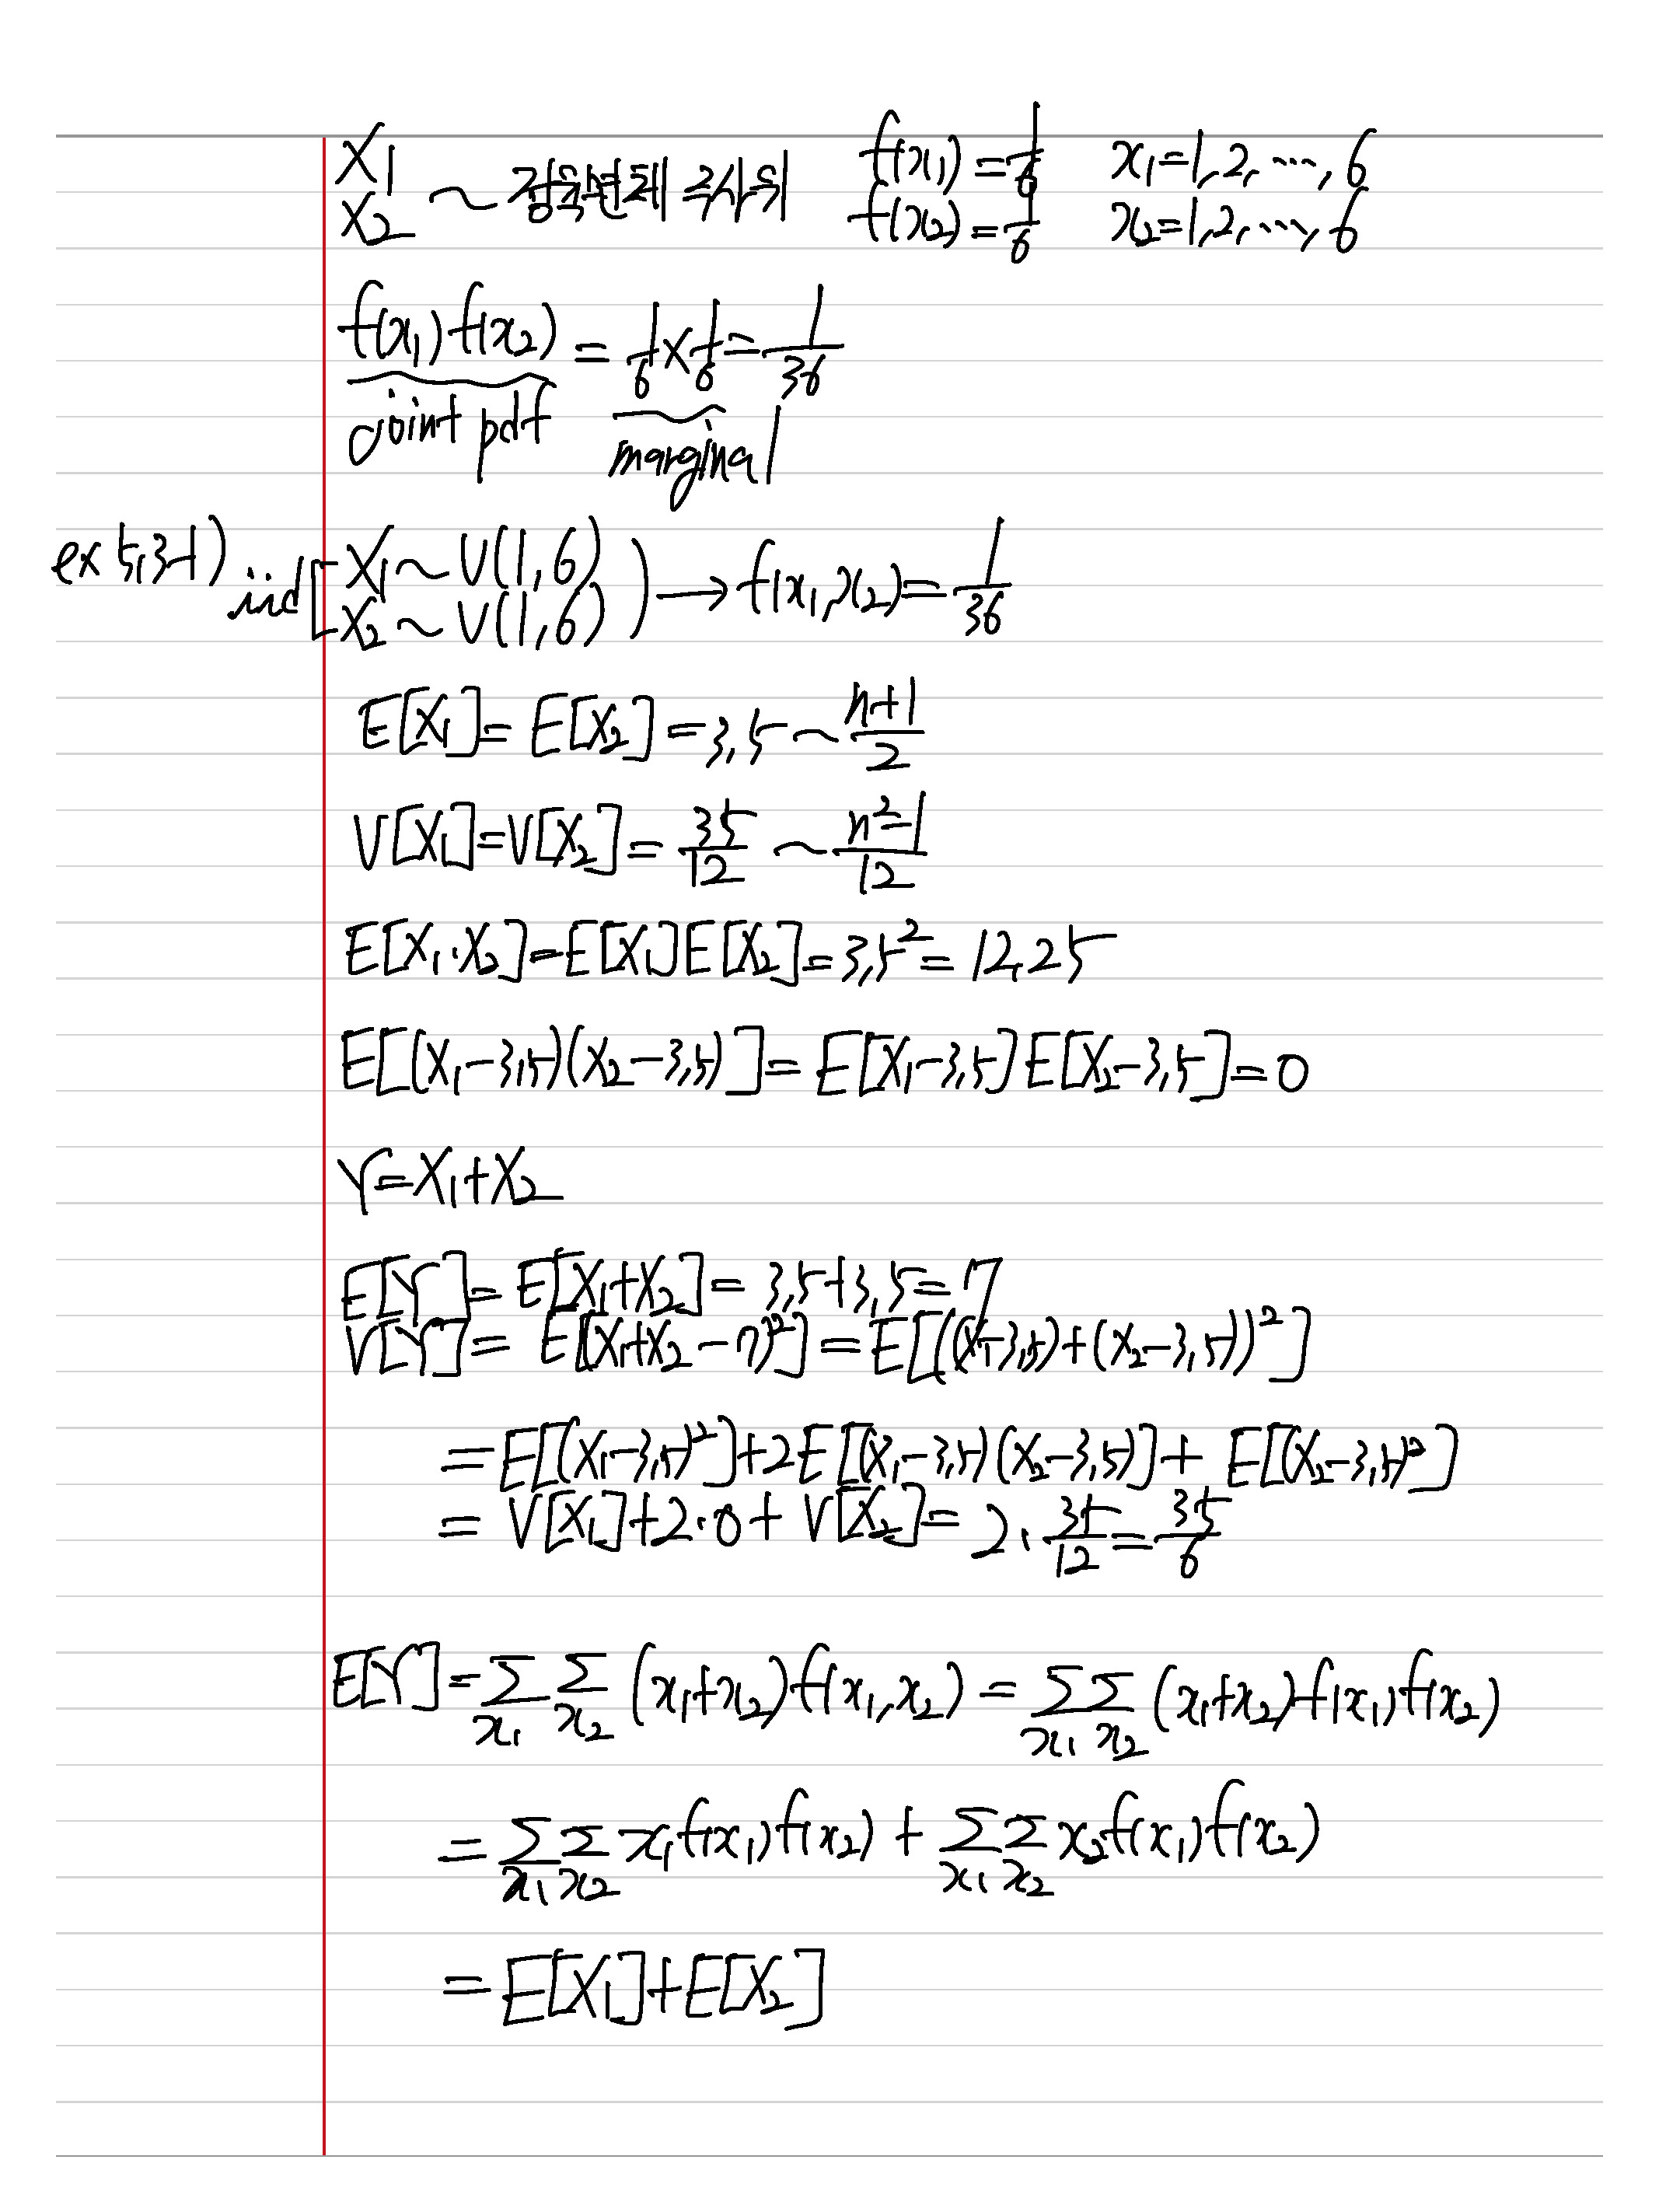 X₁ f(x₁) = 1/6 x₁=1,2,⋯,6
X₂ ~ 정육면체 주사위 f(x₂) = 1/6 x₂=1,2,⋯,6
f(x₁)f(x₂) = 1/6 × 1/6 = 1/36
joint pdf marginal
ex 5,3-1) iid [ X₁ ~ U(1,6)
X₂ ~ U(1,6) ) → f(x₁,x₂) = 1/36
E[X₁] = E[X₂] = 3,5 ~ (n+1)/2
V[X₁] = V[X₂] = 35/12 ~ (n²-1)/12
E[X₁·X₂] = E[X₁]E[X₂] = 3,5² = 12,25
E[(X₁-3,5)(X₂-3,5)] = E[X₁-3,5]E[X₂-3,5] = 0
Y = X₁+X₂
E[Y] = E[X₁+X₂] = 3,5+3,5 = 7
V[Y] = E[(X₁+X₂-7)²] = E[((X₁-3,5)+(X₂-3,5))²]
= E[(X₁-3,5)²]+2E[(X₁-3,5)(X₂-3,5)]+E[(X₂-3,5)²]
= V[X₁]+2·0+V[X₂] = 2·35/12 = 35/6
E[Y] = Σx₁ Σx₂ (x₁+x₂)f(x₁,x₂) = Σx₁ Σx₂ (x₁+x₂)f(x₁)f(x₂)
= Σx₁ Σx₂ x₁f(x₁)f(x₂) + Σx₁ Σx₂ x₂f(x₁)f(x₂)
= E[X₁]+E[X₂]